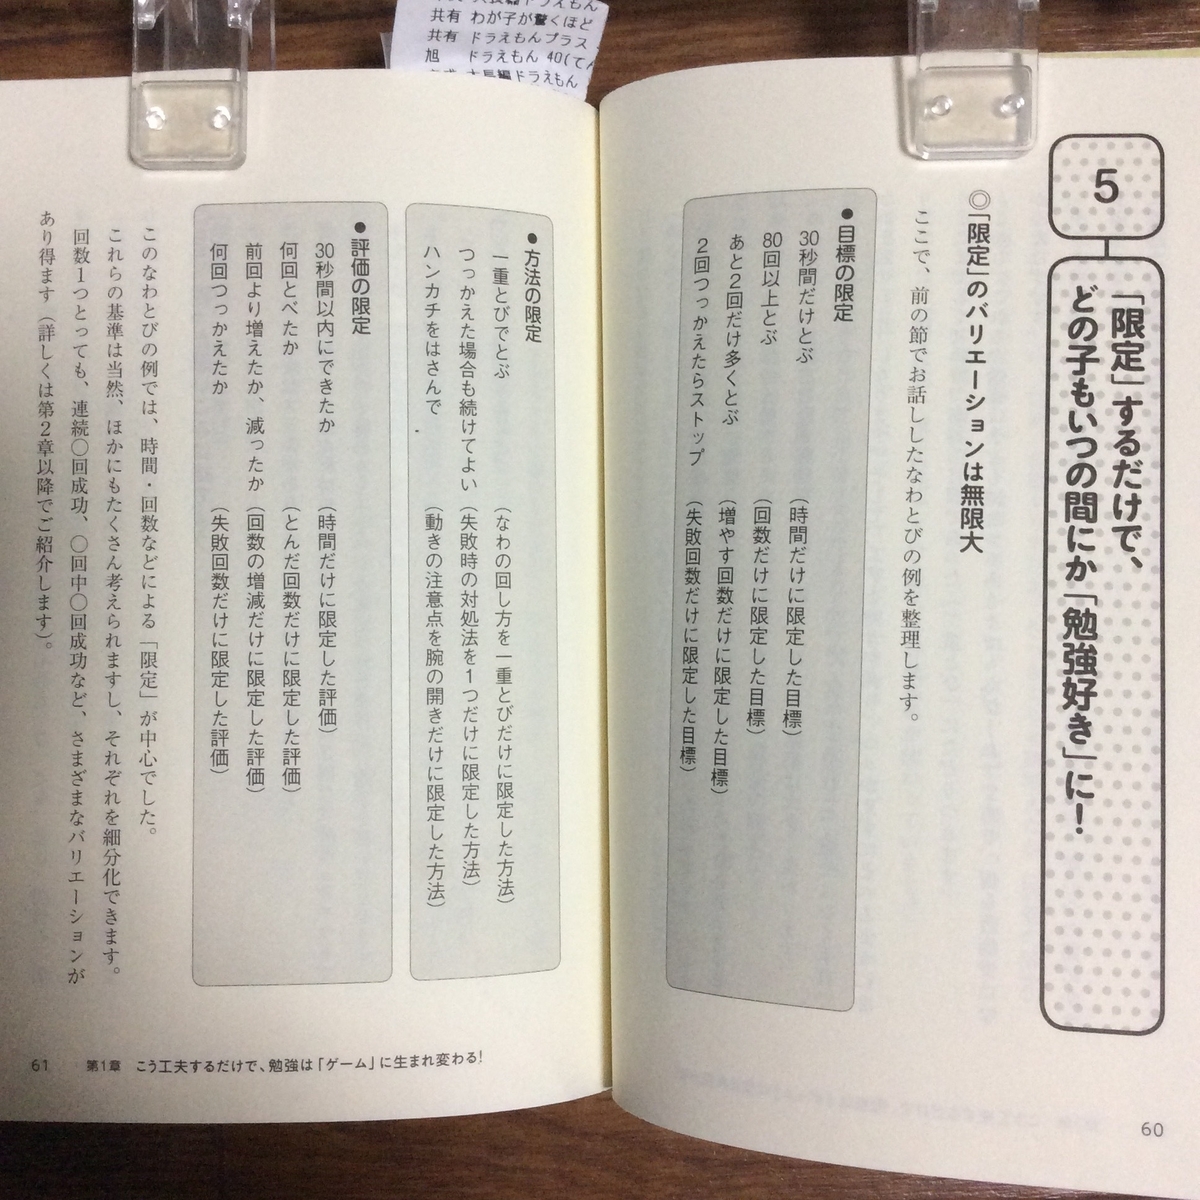 共有 わが子が驚くほど
共有 ドラえもんプラス
旭 ドラえもん 40(てん
大長編ドラえもん
5
「限定」するだけで、
どの子もいつの間にか「勉強好き」に!
◎「限定」のバリエーションは無限大
ここで、前の節でお話ししたなわとびの例を整理します。
●目標の限定
30秒間だけとぶ (時間だけに限定した目標)
80回以上とぶ (回数だけに限定した目標)
あと2回だけ多くとぶ (増やす回数だけに限定した目標)
2回つっかえたらストップ (失敗回数だけに限定した目標)
60
●方法の限定
一重とびでとぶ (なわの回し方を一重とびだけに限定した方法)
つっかえた場合も続けてよい (失敗時の対処法を1つだけに限定した方法)
ハンカチをはさんで (動きの注意点を腕の開きだけに限定した方法)
●評価の限定
30秒間以内にできたか (時間だけに限定した評価)
何回とべたか (とんだ回数だけに限定した評価)
前回より増えたか、減ったか (回数の増減だけに限定した評価)
何回つっかえたか (失敗回数だけに限定した評価)
このなわとびの例では、時間・回数などによる「限定」が中心でした。
これらの基準は当然、ほかにもたくさん考えられますし、それぞれを細分化できます。
回数1つとっても、連続〇回成功、〇回中〇回成功など、さまざまなバリエーションが
あり得ます(詳しくは第2章以降でご紹介します)。
61 第1章 こう工夫するだけで、勉強は「ゲーム」に生まれ変わる!